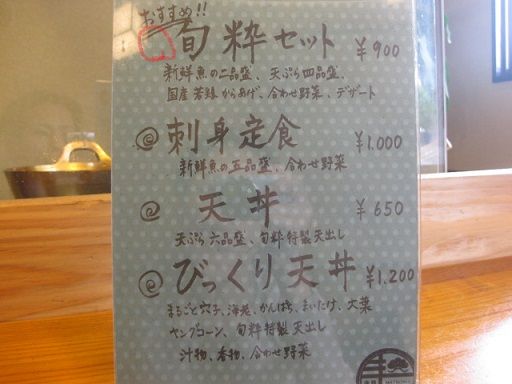 おすすめ!!
旬粋セット ¥900
新鮮魚の二品盛、天ぷら四品盛、
国産若鶏からあげ、合わせ野菜、デザート
◎刺身定食 ¥1.000
新鮮魚の五品盛、合わせ野菜
◎天丼 ¥650
天ぷら六品盛、旬粋特製天出し
◎びっくり天丼 ¥1.200
まるごと穴子、海老、かんぱち、まいたけ、大葉
ヤングコーン、旬粋特製天出し
汁物、香物、合わせ野菜